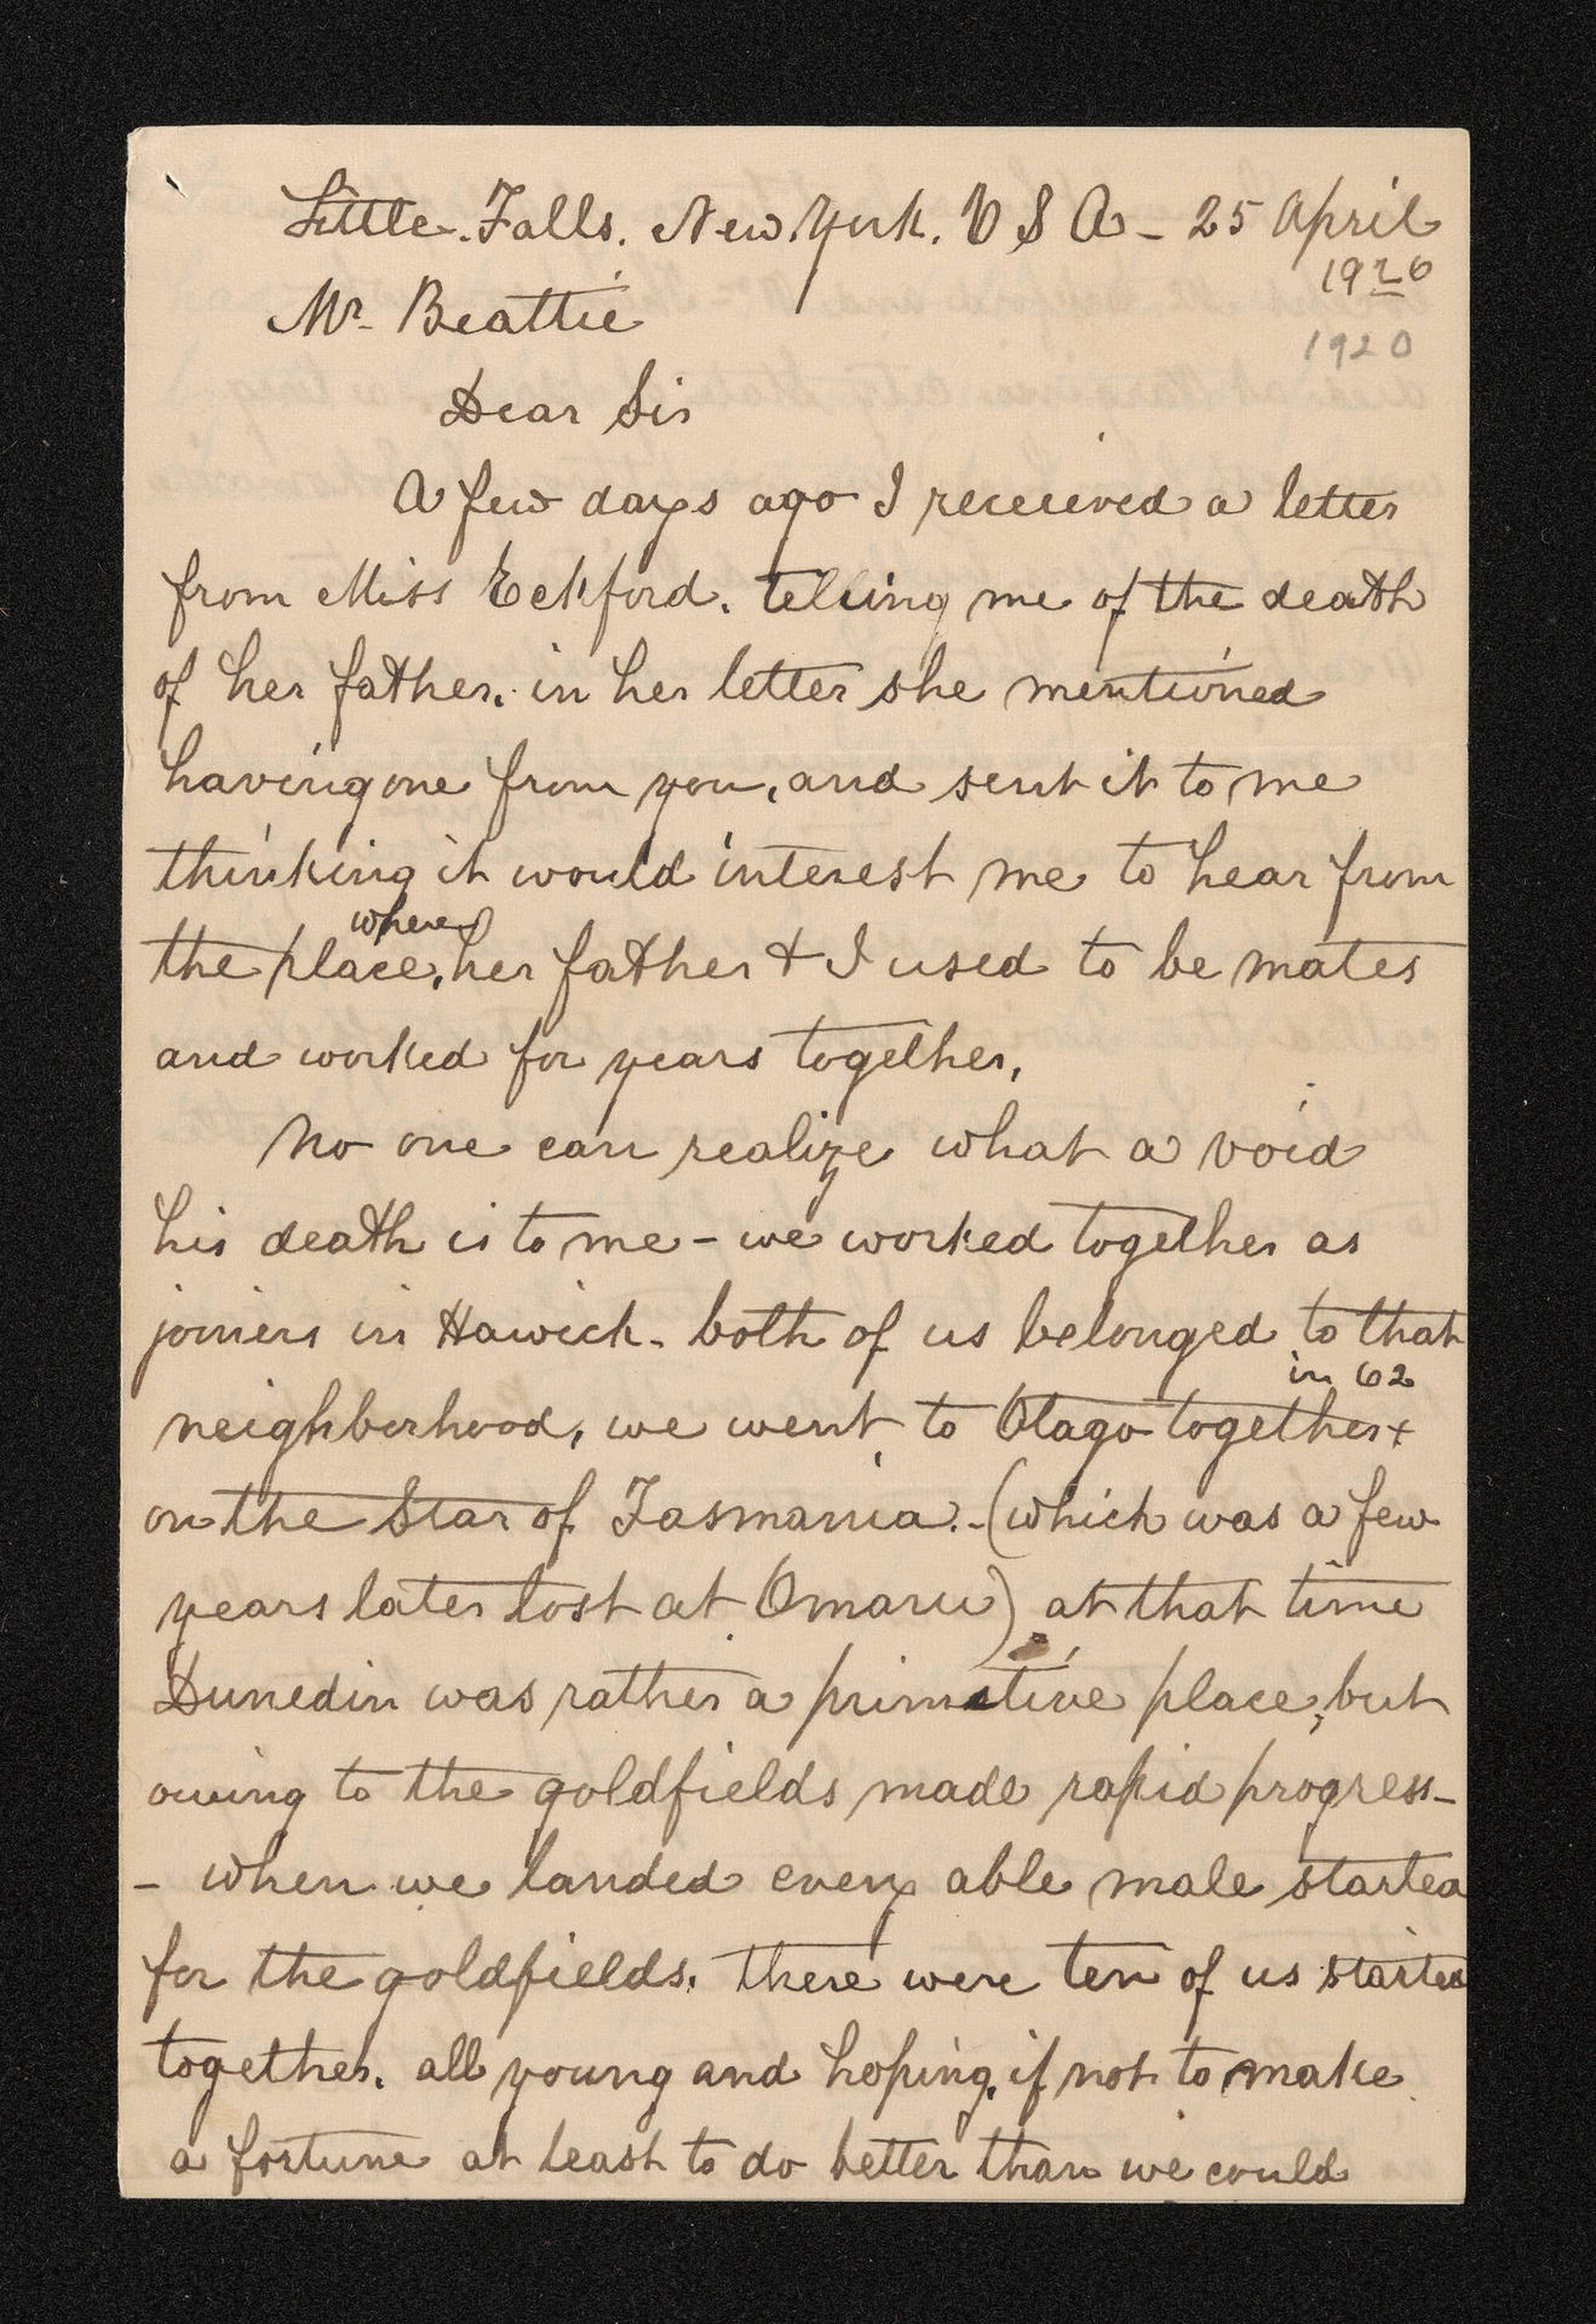 Little-Falls. New York. U S A - 25 April
1920
1920
Mr. Beattie
Dear Sir
A few days ago I receieved a letter
from Miss Eckford. telling me of the death
of her father. in her letter she mentioned
having one from you, and sent it to me
thinking it would interest me to hear from
where
the place, her father & I used to be mates
and worked for years together,
No one can realize what a void
his death is to me - we worked together as
joiners in Hawick - both of us belonged to that
in 62
neighborhood, we went to Otago together +
on the Star of Tasmania. - (which was a few
years later lost at Omaru) at that time
Dunedin was rather a primitive place, but
owing to the goldfields made rapid progress -
- when we landed every able male started
for the goldfields. there were ten of us started
together. all young and hoping, if not to make
a fortune at least to do better than we could